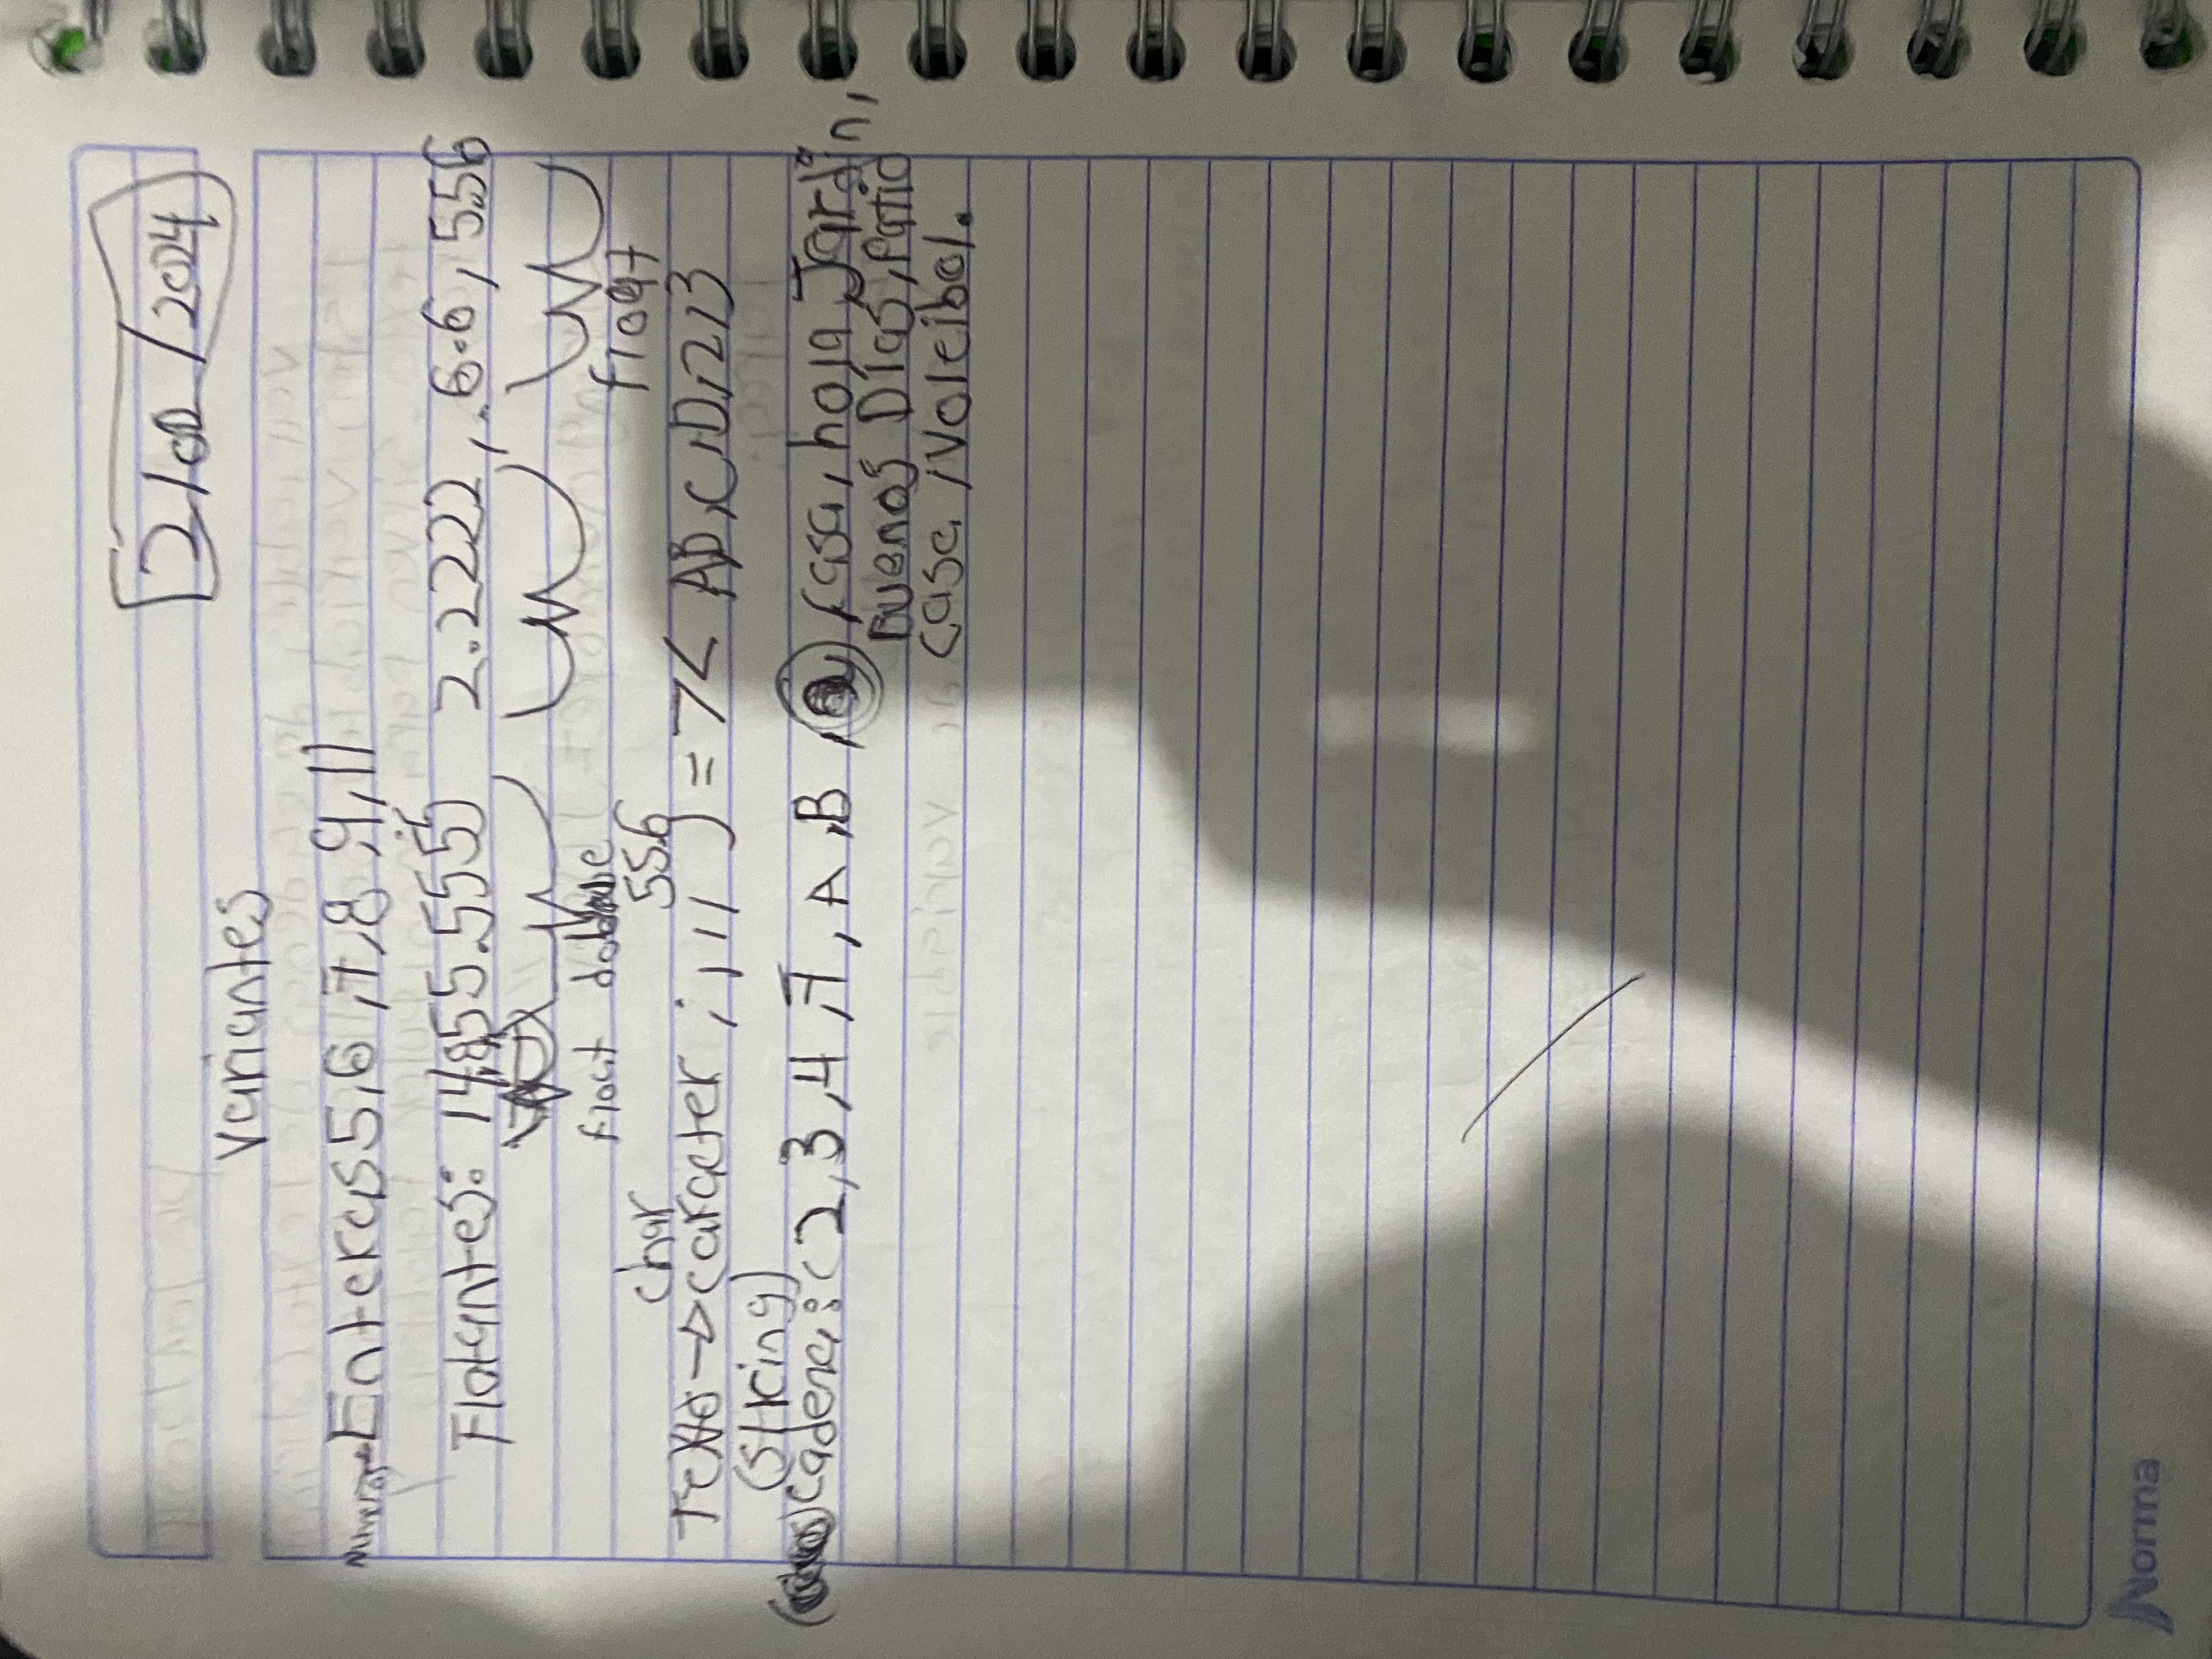 2/02/2024
Variantes
Enteras 5,6,7,8,9,11
Flotantes: 14855.5555) 2.2222, 6.6, 5.56
float float
char 556
Texto->caracter ; , , , ) = > < AB,C,D,2,3
(String)
Cadena: (2,3,4,7, A,B, casa, hola, Jardín,
Buenos Días, Patio
Casa, Voleibol.
Norma